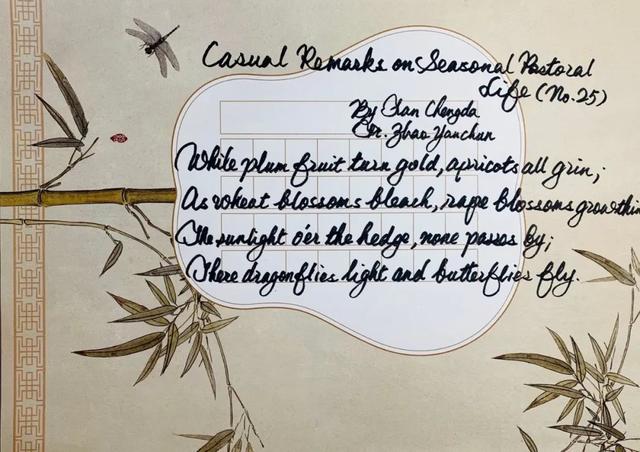 Casual Remarks on Seasonal Pastoral
Life (No.25)
By Chan Chengda
Tr. Zhao Yanchun
White plum fruit turn gold, apricots all grin;
As wheat blossoms bleach, rape blossoms grow thin
The sunlight o'er the hedge, none passes by;
There dragonflies light and butterflies fly.